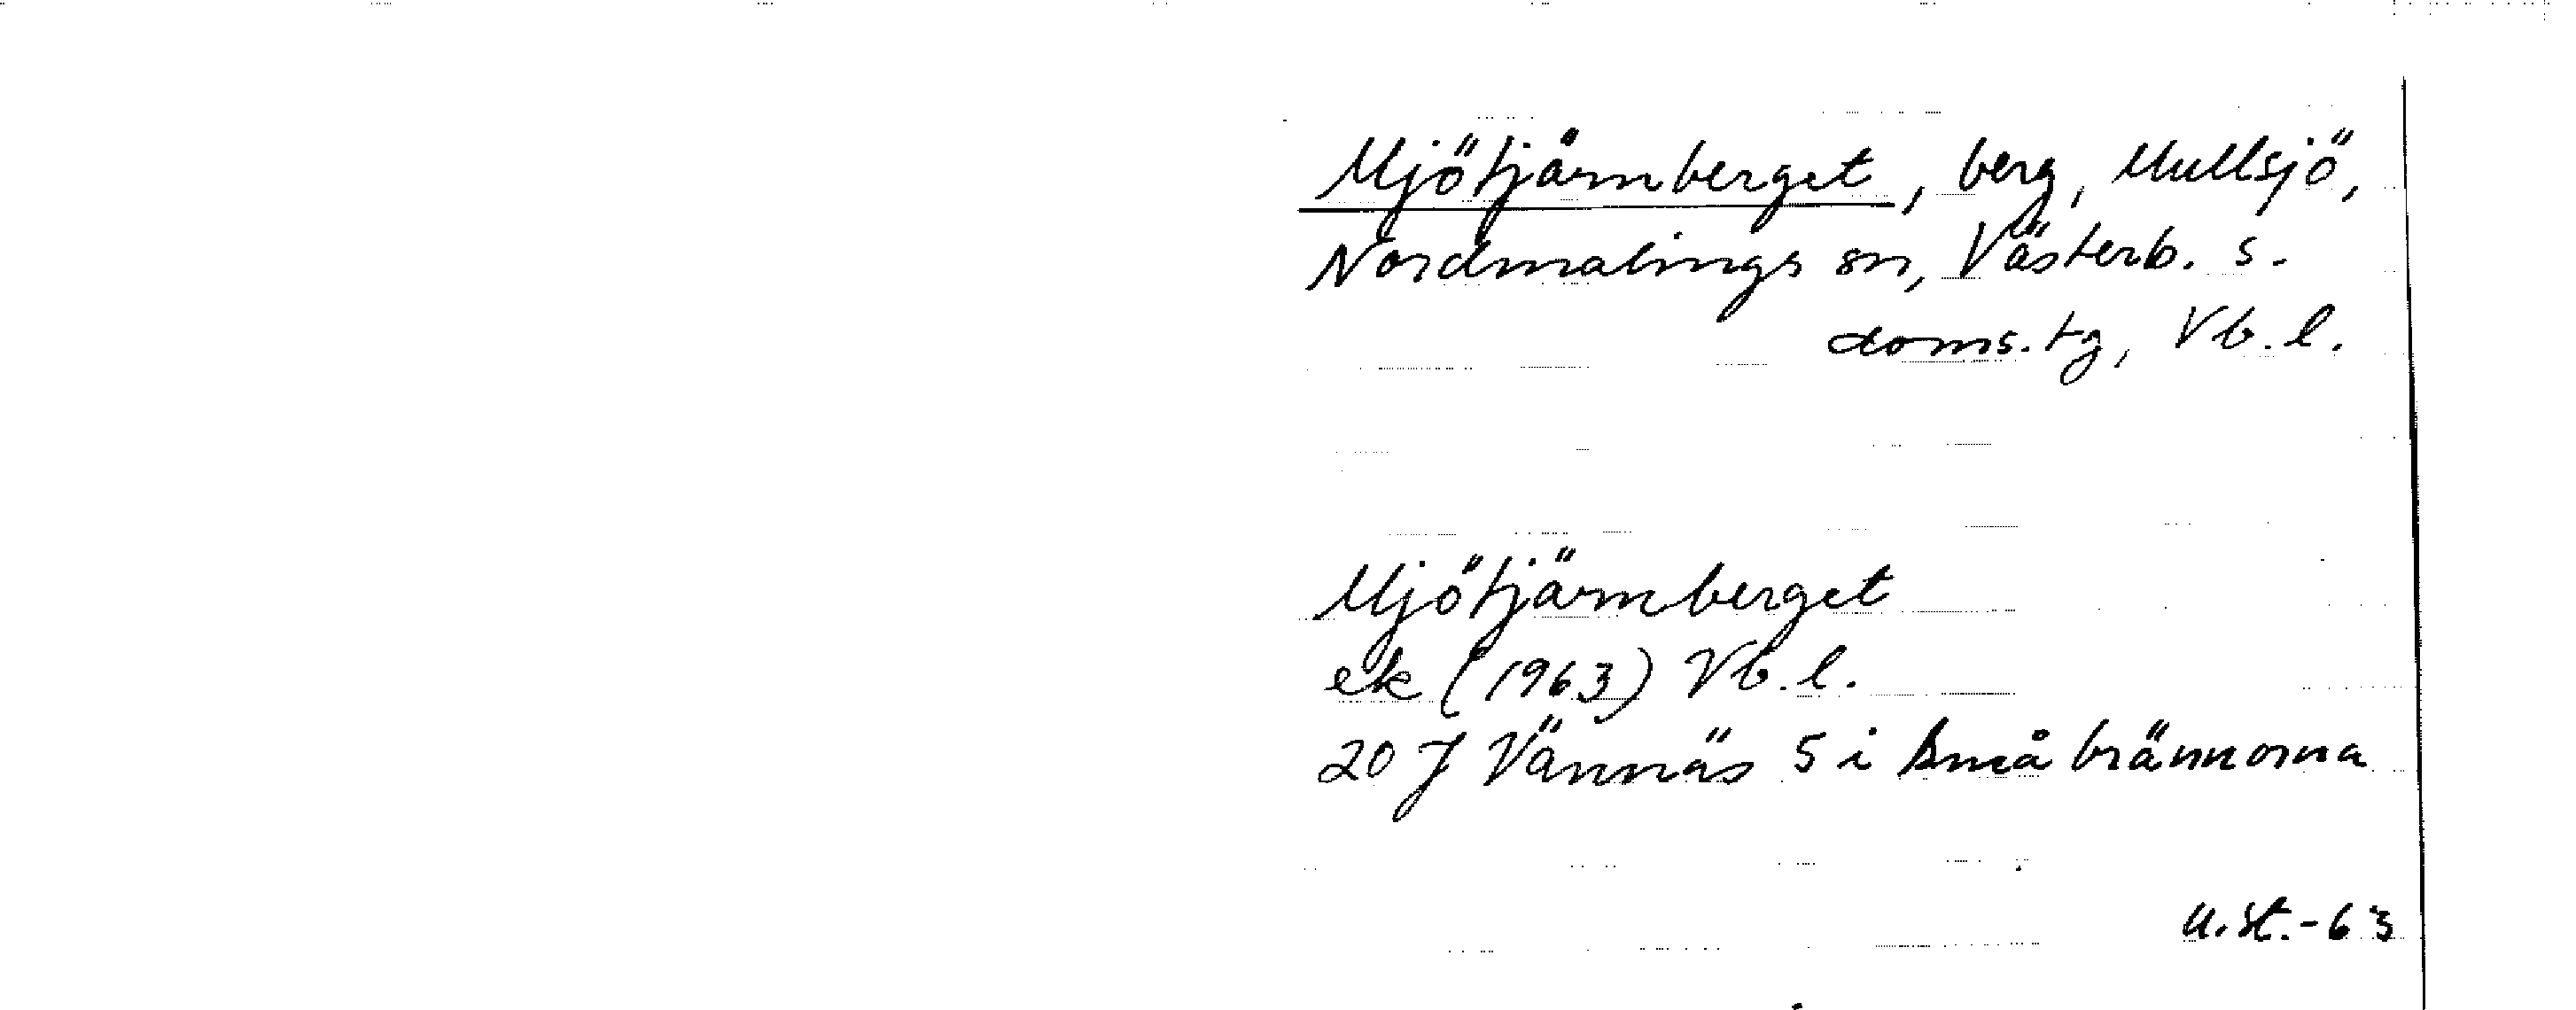 Mjötjärnberget, berg, Mullsjö,
Nordmalings sn, Västerb. s.
doms.tg, Vb.l.
Mjötjärnberget
ek (1963) Vb.l.
20 J Vännäs 5 i Småbrännorna
U.St.-63